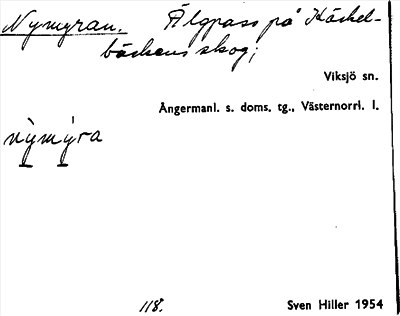 Nymyran. Älgpass på Käckel-
bäckens skog;
Viksjö sn.
Ångermanl. s. doms. tg., Västernorrl. l.
nỳmýra
118.
Sven Hiller 1954